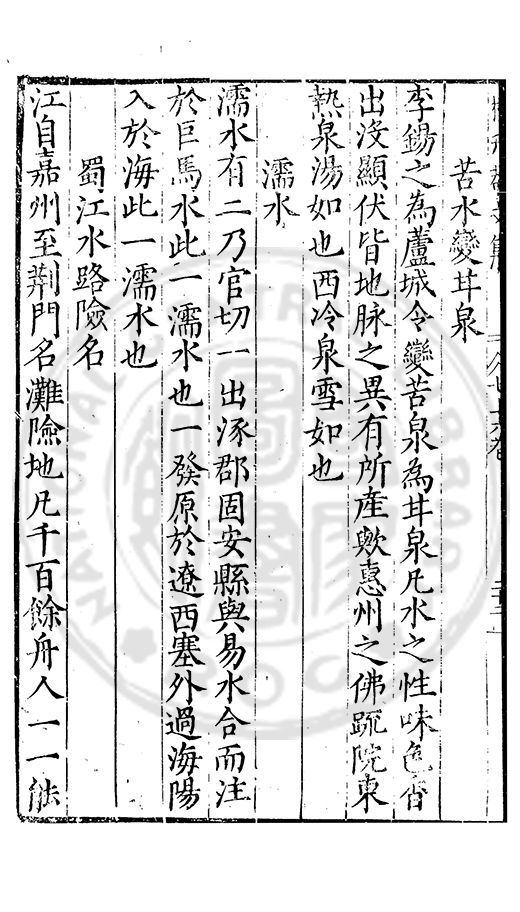 苦水變甘泉
李錫之為蘆城令變苦泉為甘泉凡水之性味色香
出沒顯伏皆地脉之異有所産歟惠州之佛跡院東
熱泉湯如也西冷泉雪如也
濡水
濡水有二乃官切一出涿郡固安縣與易水合而注
於巨馬水此一濡水也一發原於遼西塞外過海陽
入於海此一濡水也
蜀江水路險名
江自嘉州至荆門名灘險地凡千百餘舟人一一能